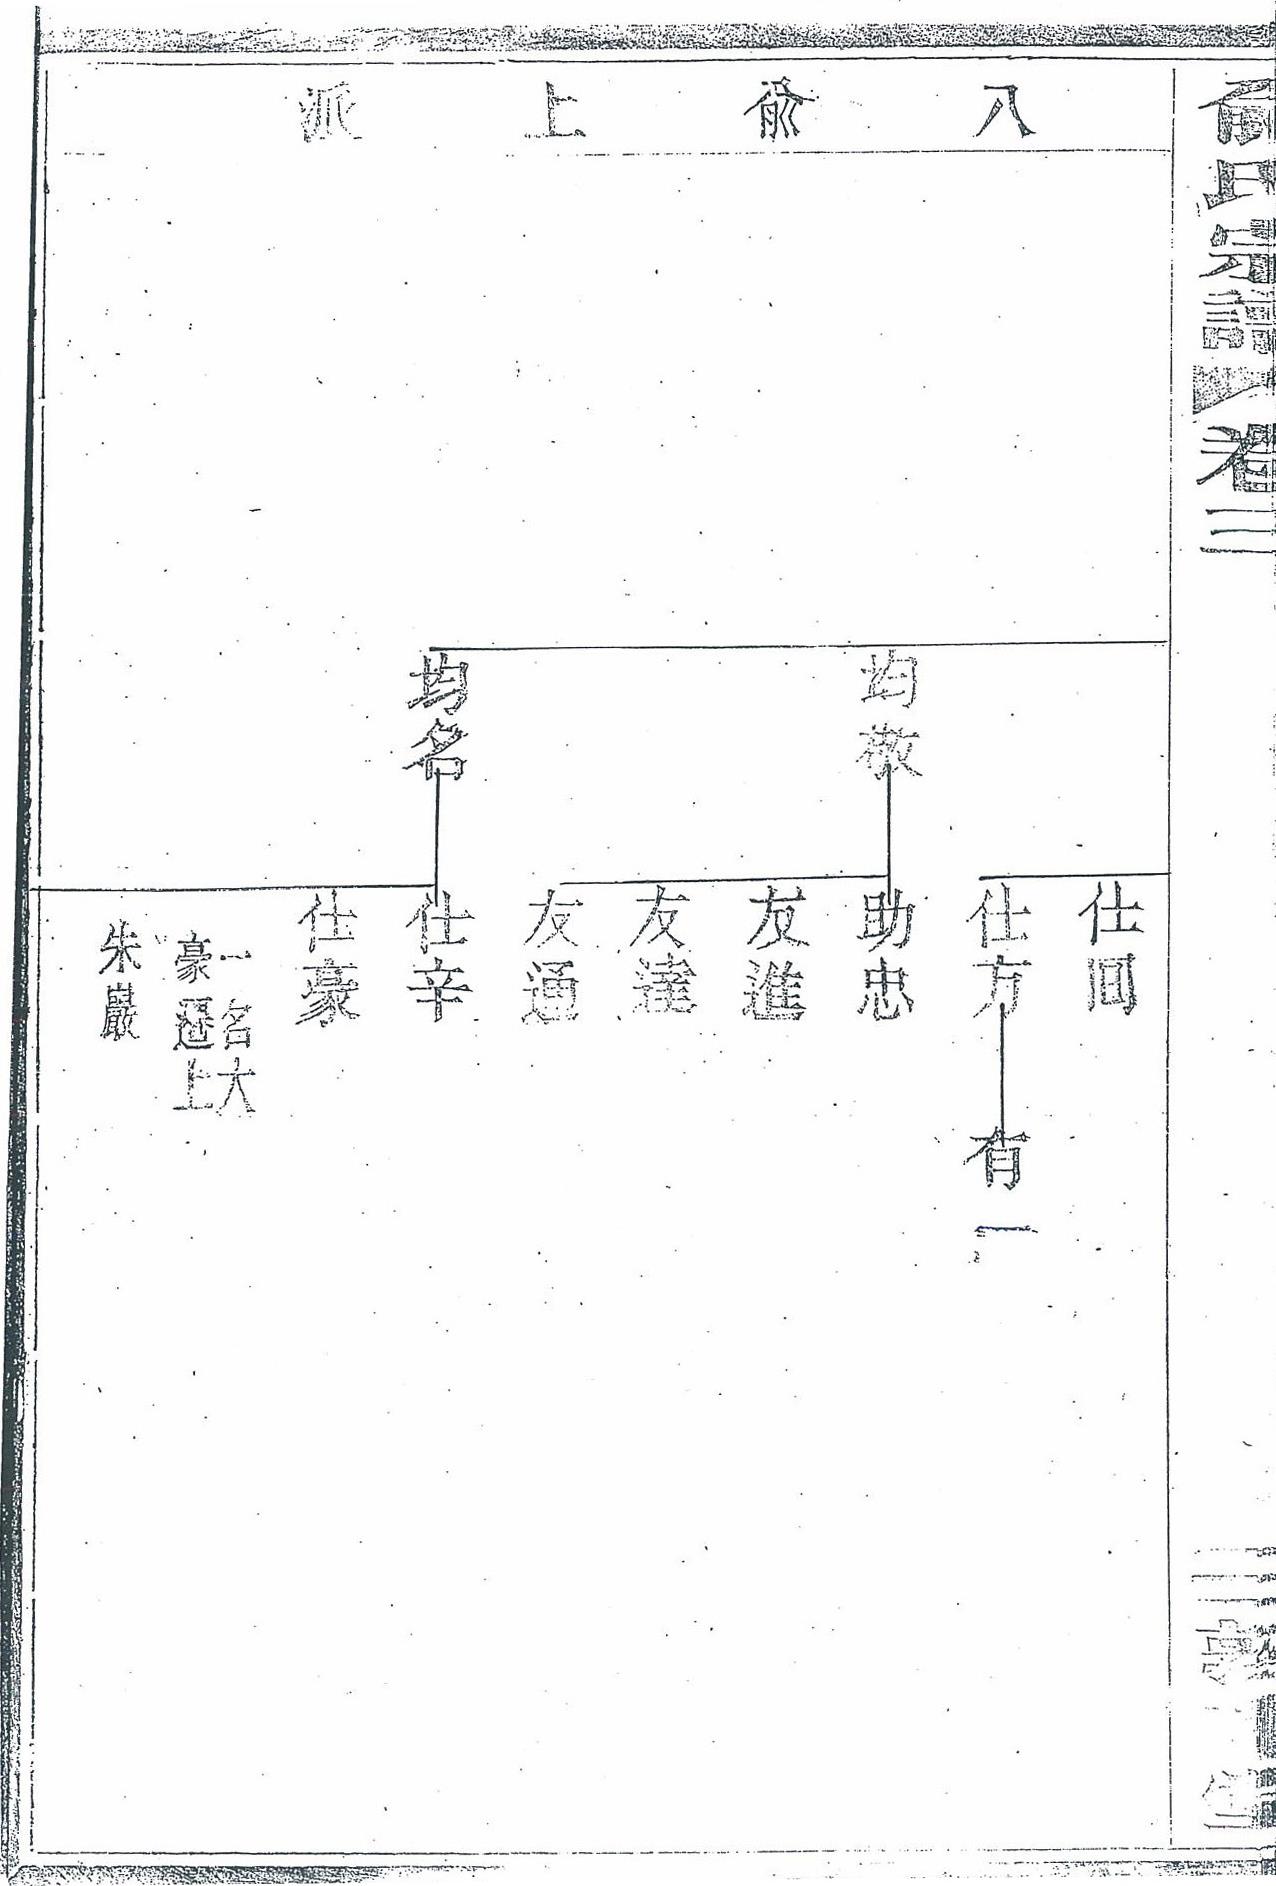 俞氏宗譜 卷三
八俞上派
均敬
均名
仕圓
仕方
有一
助忠
友進
友達
友通
仕辛
仕豪
一名大
豪遷上
朱巖